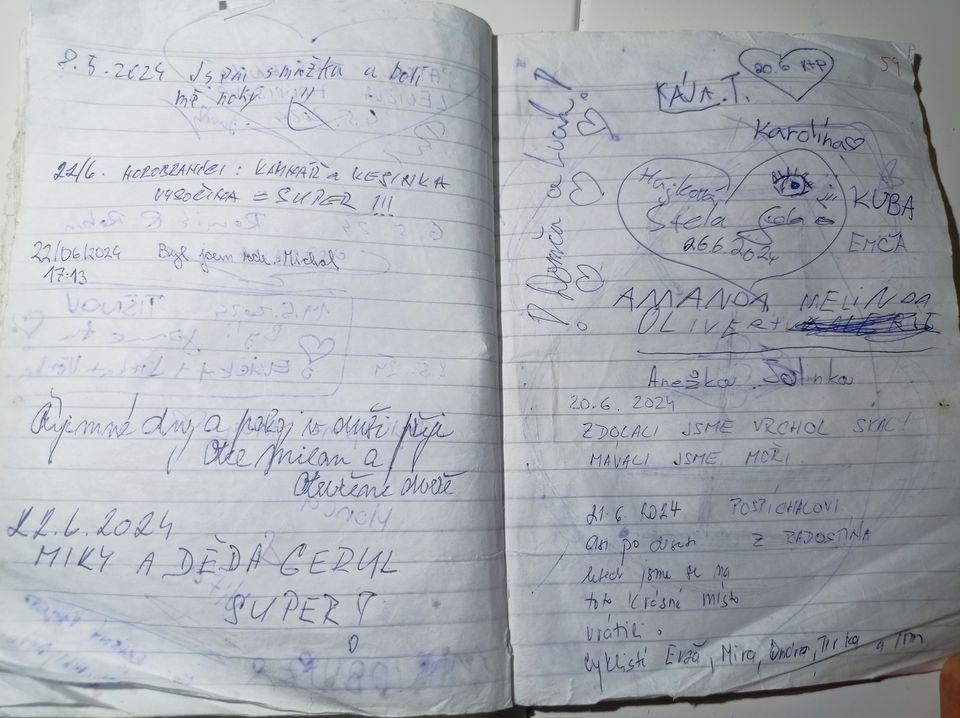 8.5.2024 Jsem smažka a bolí
mě nohy !!!
22/6. HOROBRANCI: KAMNÁŘ a KESINKA
VYSOČINA = SUPER !!!
22/06/2024 Byl jsem zde. Michal
17:13
Příjemné dny a pokoj v duši přeje
Ota Milan a
Otevřené duše
22.6.2024
MIKY A DĚDA GERYL
SUPER
Domča a Lukáš
KÁJA.T.
20.6
59
Karolína
Hájková
Stela
26.6.2024
KUBA
EMČA
AMANDA, MELINDA
OLIVER +
Anežka
20.6. 2024
ZDOLALI JSME VRCHOL SKAL!
MÁVALI JSME MOŘI.
21.6 2024 POSTÍCHALOVI
Asi po deseti Z RADOSTÍNA
letech jsme se na
toto krásné místo
vrátili.
cyklisti Evža, Míra, Ondra, Jirka a